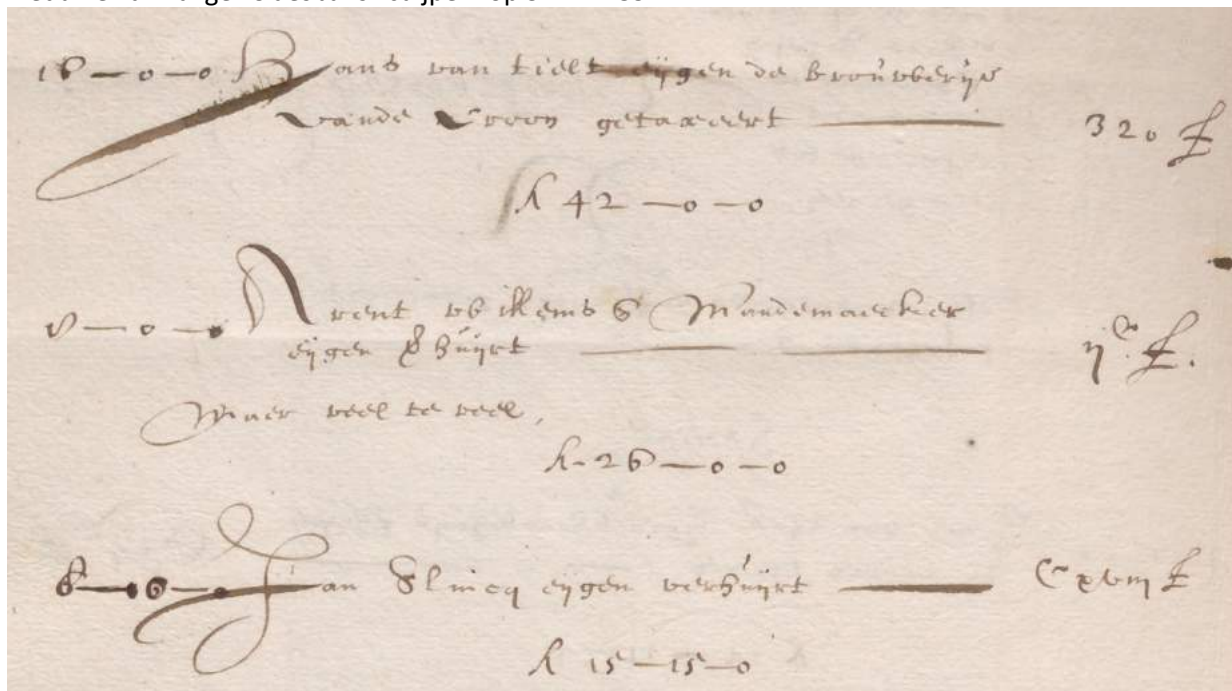 16 — 0 — 0 Hans van tielt eijgen de brouwerije
vande Croon getaxeert 320 £
R 42 — 0 — 0
— 0 — Arent willems S Mandemaecker
eijgen & huijrt ijC £.
Maer veel te veel,
R 26 — 0 — 0
6 — 6 — Jan Slincq eijgen verhuijrt Cxviij £
R 15 — 15 — 0